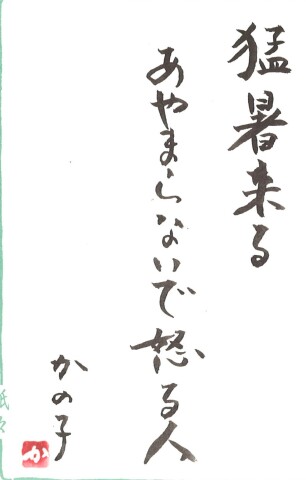 猛暑来る
あやまらないで怒る人
かの子
か